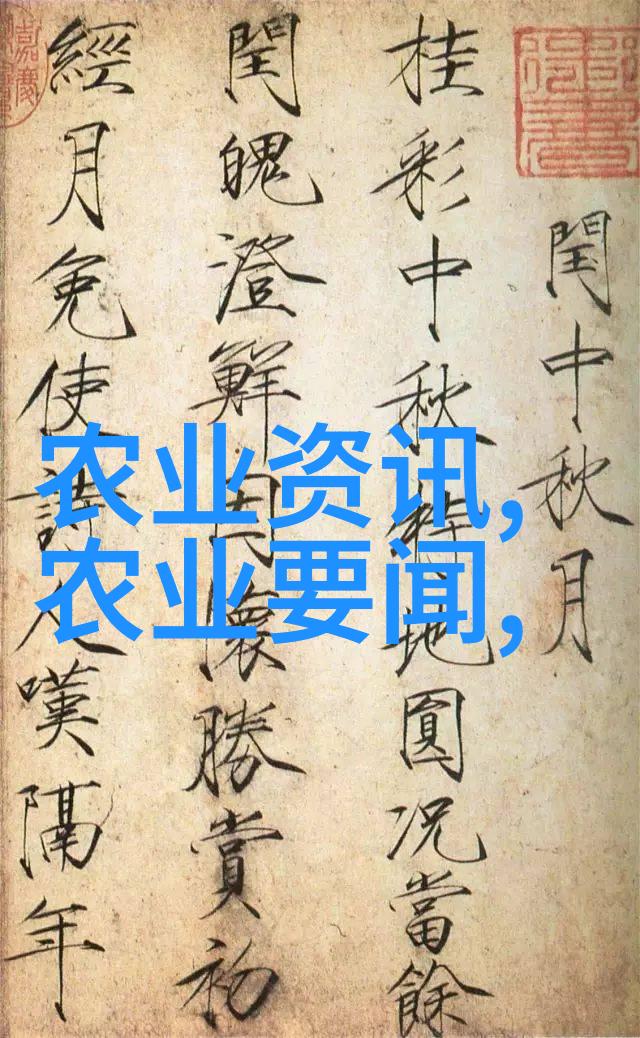 閏中秋月
桂彩中秋特地圓況當餘
閏魄澄鮮因懷勝賞初
經月免使詩人嘆隔年
农业资讯,
农业要闻,